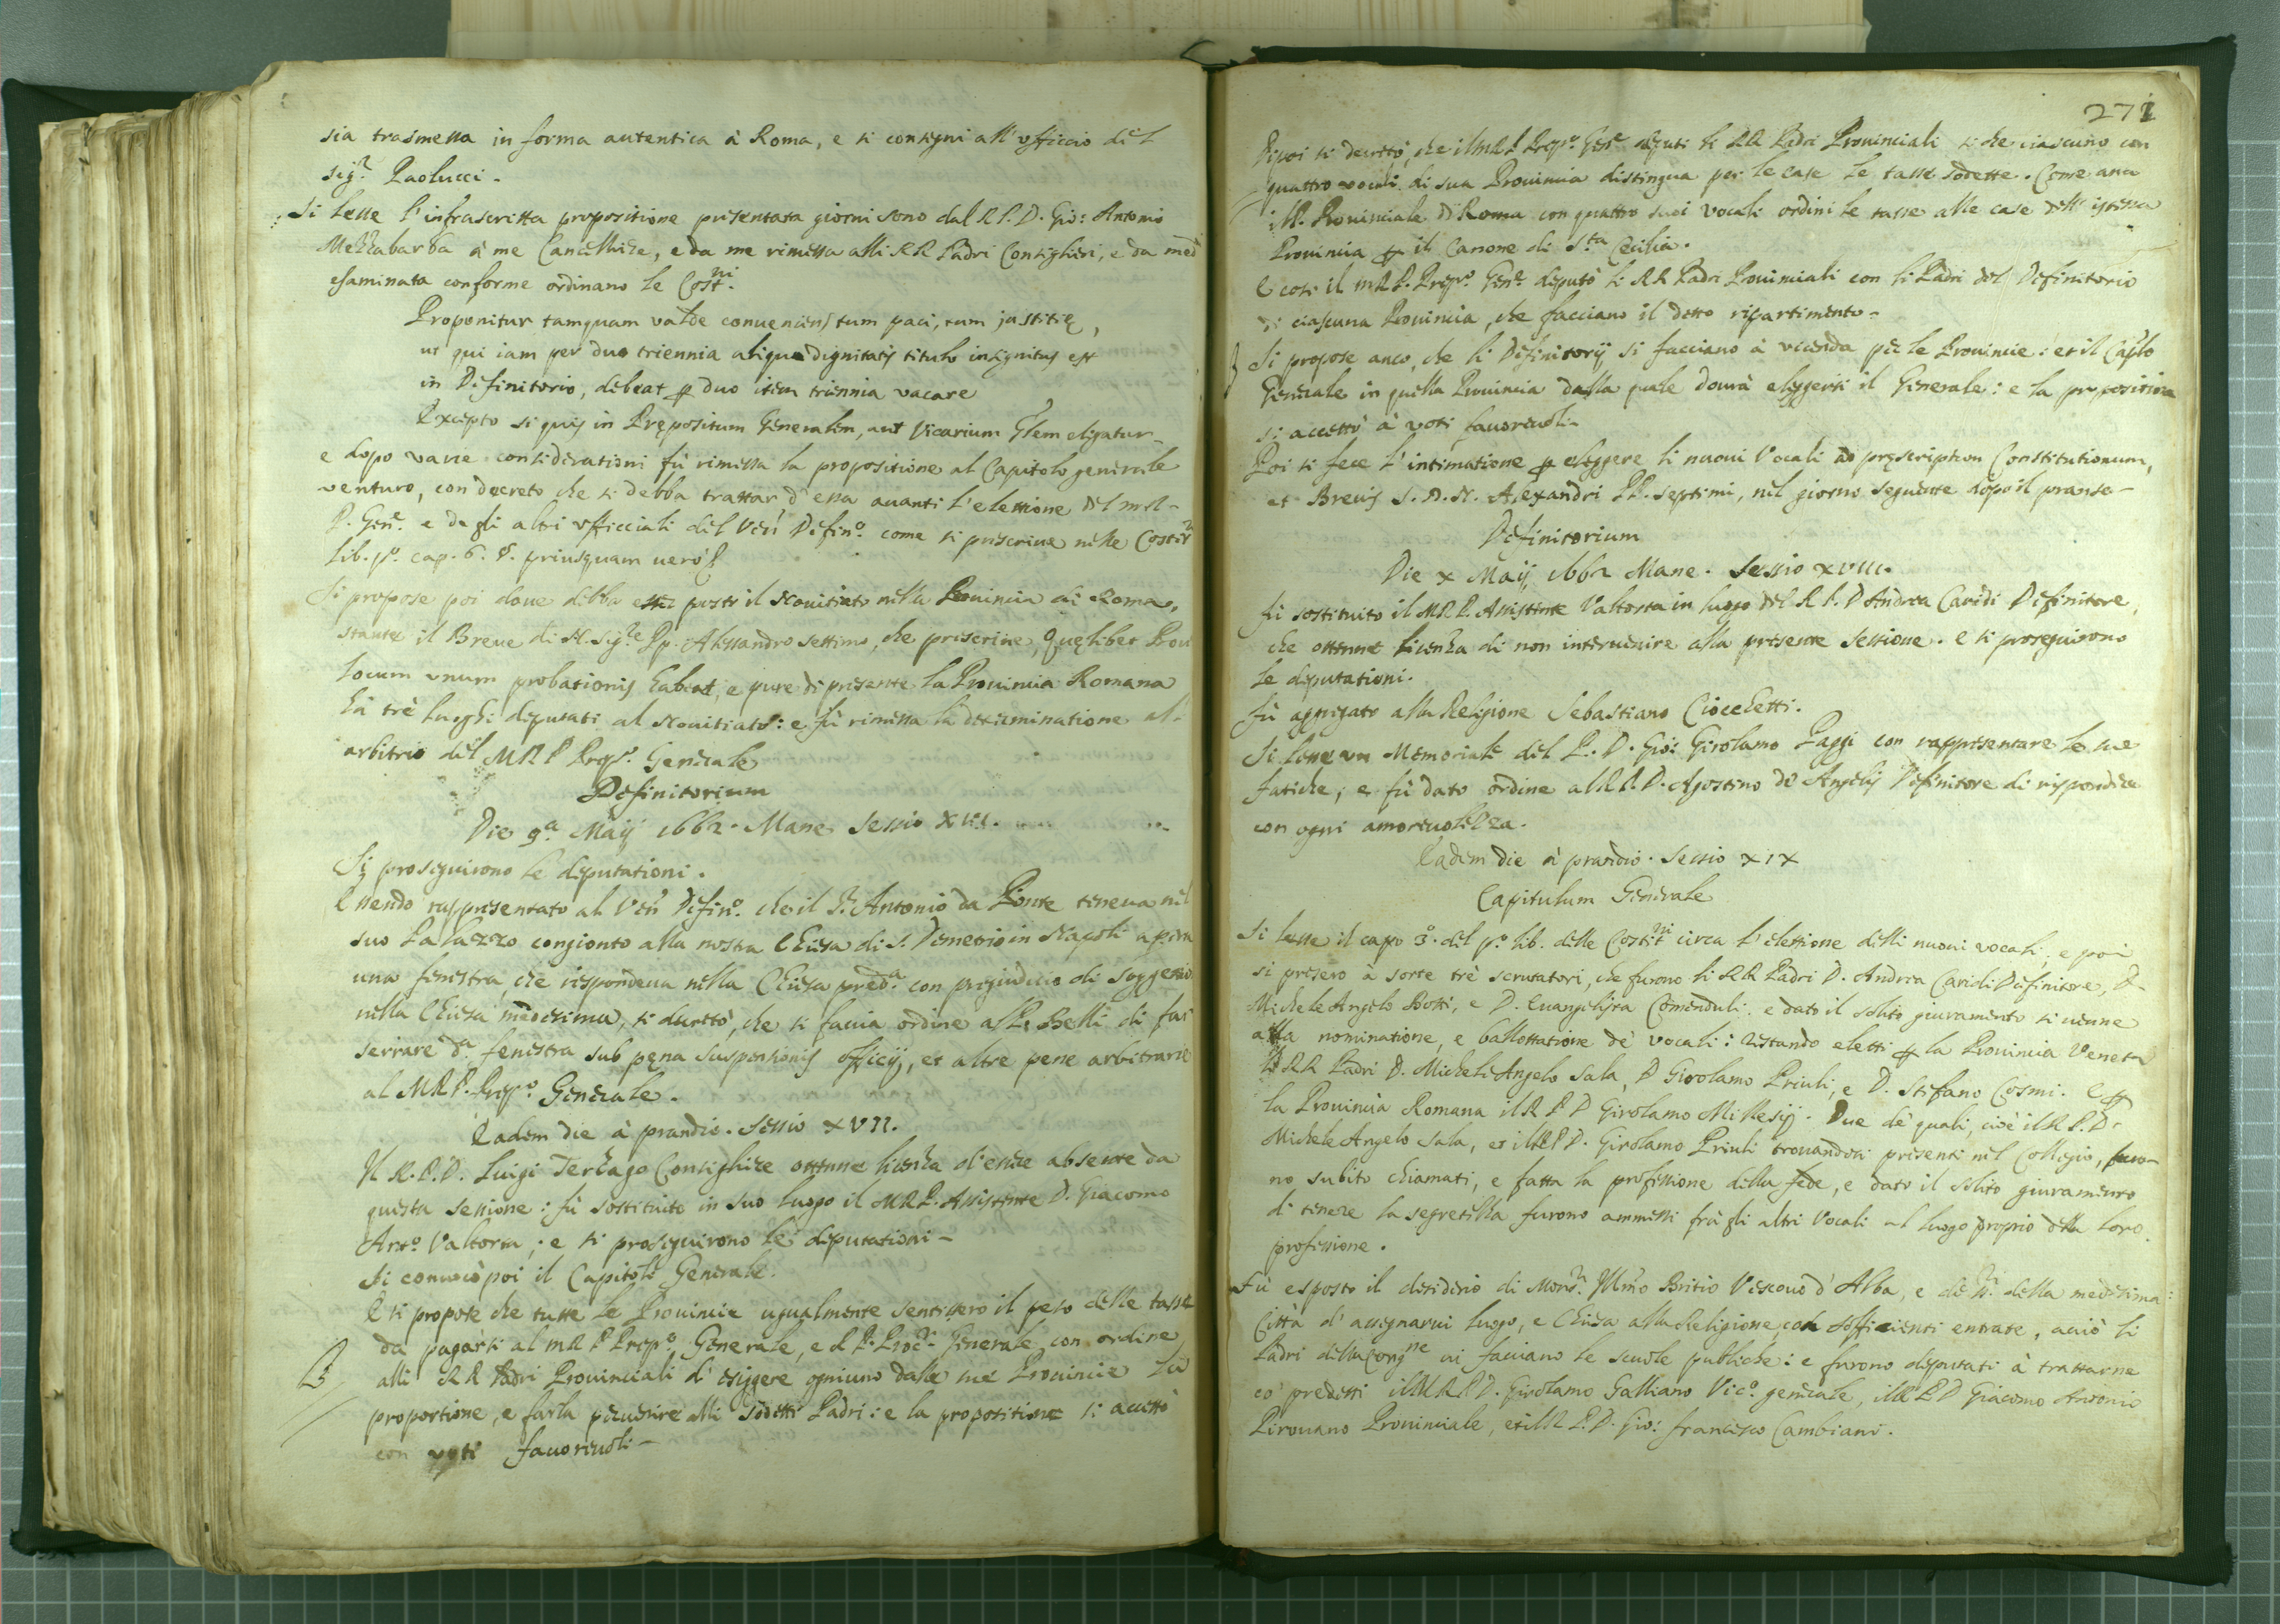 sia trasmessa in forma autentica à Roma, e si consigni all'ufficio del
sig.r Paolucci.
Si lesse l'infrascritta propositione presentata giorni sono dal R.P.D. Gio: Antonio
Mezzabarba à me Cancelliere, e da me rimessa alli RR Padri Consiglieri, e da med
esaminata conforme ordinano le Cost.ni
Proponitur tamquam valde conueniens tum paci, tum justitię,
ut qui iam per duo triennia aliquo dignitatis titulo insignitus est
in Definitorio, debeat ꝑ duo item triennia vacare
Excepto si quis in Prępositum Generalem, aut Vicarium Glem eligatur
e dopo varie considerationi fù rimessa la propositione al Capitolo generale
venturo, con decreto che si debba trattar d'essa auanti l'elettione del m.R.
P. Gen.e e degli altri ufficiali del Ven Defin.o come si prescriue nelle Costit
lib. p.o cap. 6. §. priusquam uerò
Si propose poi doue debba esser posto il Nouitiato nella Prouincia di Roma,
stante il Breue di N. Sig.re Pp. Alessandro settimo, che prescriue, Quęlibet Prou
locum unum probationis habeat, e pure di presente la Prouincia Romana
hà trè luoghi deputati al Nouitiato: e fù rimessa la determinatione al
arbitrio del MRP Prep.o Generale
Definitorium
Die 9.a Maij 1662. Mane Sessio XVI.
Si proseguirono le deputationi.
Essendo rappresentato al Ven Defin.o che il S.r Antonio da Ponte teneua nel
suo Palazzo congionto alla nostra Chiesa di S. Demetrio in Napoli aperta
una fenestra, che rispondeua nella Chiesa pred.a con pregiudicio di soggettio
nella Chiesa medesima, si decretò, che si faccia ordine al P. Belli di far
serrare d.a fenestra sub pęna suspensionis officij, et altre pene arbitrarie
al MRP. Prep.o Generale.
Eadem die à prandio. Sessio XVII.
Il R.P.D. Luigi Terzago Consigliere ottenne licenza d'essere absente da
questa sessione: fù sostituito in suo luogo il MRP. Assistente D. Giacomo
Ant.o Valtorta; e si proseguirono le deputationi
Si conuocò poi il Capitolo Generale.
E si propose che tutte le Prouincie ugualmente sentissero il peso delle tasse
da pagarsi al mRP Prep.o Generale, e al P. Proc.r Generale con ordine
alli RR Padri Prouinciali di esiggere ogniuno dalle sue Prouincie la
proportione, e farla peruenire alli sodetti Padri: e la propositione si accettò
con voti fauoreuoli
271
Dipoi si decretò, che il MRP Prep.o Gen.e deputi li RR Padri Prouinciali si che ciascuno con
quattro vocali di sua Prouincia distingua per le case le tasse sodette. Come anco
il P. Prouinciale di Roma con quattro suoi vocali ordini le tasse alle case dell'istessa
Prouincia ꝑ il Canone di S.ta Cecilia.
E cosi il MRP. Prep.o Gen.e deputò li RR Padri Prouinciali con li Padri del Definitorio
di ciascuna Prouincia, che facciano il detto ripartimento.
Si propose anco, che li Definitorij si facciano à vicenda per le Prouincie: et il Caplo
Generale in quella Prouincia dalla quale dourà eleggersi il Generale: e la propositione
si accettò à voti fauoreuoli
Poi si fece l'intimatione ꝑ eleggere li nuoui Vocali ad pręscriptum Constitutionum,
et Breuis S.D.N. Alexandri PP. septimi, nel giorno seguente dopo il pranso
Definitorium
Die X Maij 1662 Mane. Sessio XVIII.
Fù sostituito il MRP. Assistente Valtorta in luogo del R.P.D. Andrea Cauidi Definitore,
che ottenne licenza di non interuenire alla presente sessione. e si proseguirono
le deputationi.
Fù agregato alla Religione Sebastiano Ciocchetti.
Si lesse un Memoriale del P. D. Gio: Girolamo Paggi con rappresentare le sue
fatiche; e fù dato ordine al R.P.D. Agostino de Angelis Definitore di rispondere
con ogni amoreuolezza.
Eadem die à prandio. Sessio XIX
Capitulum Generale
Si lesse il capo 3.o del p.o lib. delle Costit.ni circa l'elettione delli nuoui vocali, e poi
si presero à sorte trè scrutatori, che furono li RR Padri D. Andrea Cauidi Definitore, D.
Michele Angelo Botti, e D. Euangelista Comenduli. e dato il solito giuramento si uenne
alla nominatione, e ballottatione de' vocali: restando eletti ꝑ la Prouincia Veneta
li RR Padri D. Michele Angelo Sala, D Girolamo Priuli, e D. Stefano Cosmi. E ꝑ
la Prouincia Romana il R P D Girolamo Millesij. Due de' quali, cioè il R.P.D.
Michele Angelo Sala, et il RPD. Girolamo Priuli trouandosi presenti nel Collegio, furo-
no subito chiamati, e fatta la professione della fede, e dato il solito giuramento
di tenere la segretezza furono ammessi frà gli altri Vocali al luogo proprio della loro
professione.
Fù esposto il desiderio di Mons.r Illmo Britio Vescouo d'Alba, e de SS.ri della medesima
Città d'assegnarui luogo, e Chiesa alla Religione, con sofficienti entrate, acciò li
Padri della Cong.ne ui facciano le scuole publiche: e furono deputati à trattarne
co' predetti il MRPD. Girolamo Galliano Vic.o generale, il RPD Giacomo Antonio
Pirouano Prouinciale, et il R P.D. Gio: Francesco Cambiani.